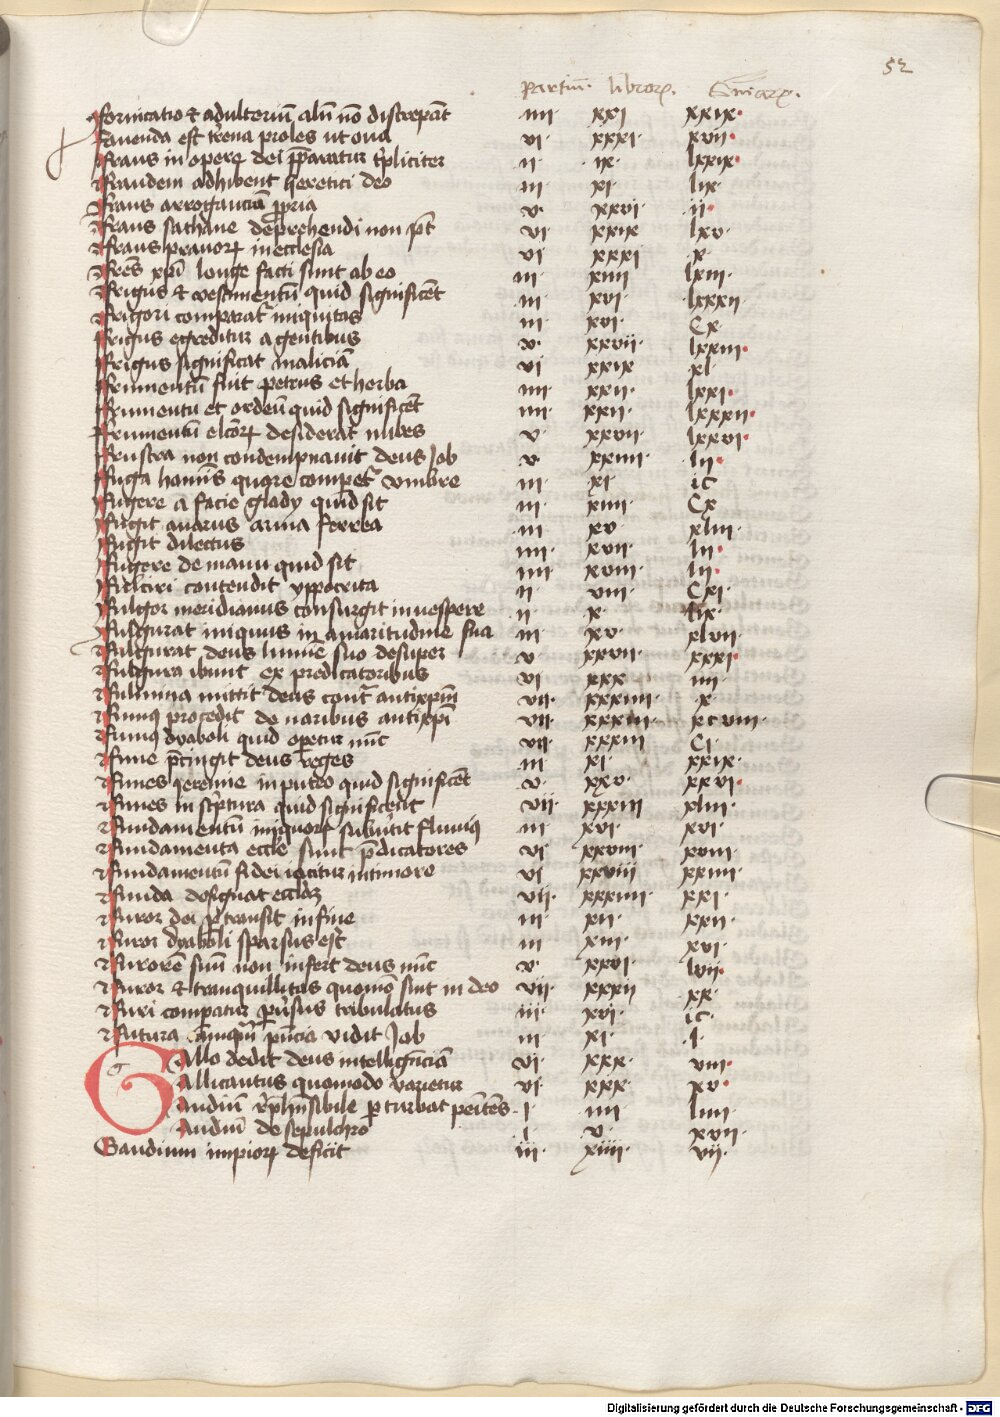 52
Partium librorum
fornicatio et adulterium aliud non discrepant iiii xxi xxix
Fauenda est terrena proles ut oua vi xxxi xvii
Fraus in opere dei preparatur tripliciter ii ix lxxix
Fraudem adhibent heretici deo iii xi lix
Fraus arrogancium propria v xxvi ii
Fraus sathane deprehendi non potest vi xxix lxv
Fraus prauorum in ecclesia vi xxxi x
Fratres xpi longe facti sunt ab eo iii xiiii lxiii
Frigus et vestimentum quid significent iii xvi lxxxii
Frigori comparatur iniquitas iii xvi Cx
Frigus egreditur a gentibus v xxvii lxxiii
Frigus significat maliciam vi xxix xl
Frumentum fuit petrus et herba iiii xxii lxxi
Frumentum et ordeum quid significent iiii xxii lxxxii
Frumentum desiderat nubes v xxvii lxxvi
Frustra non condempnauit deus Job v xxiiii lii
Fuga hominis quare comparatur vmbre iii xi ic
Fugere a facie glady quid sit iii xiiii Cx
Fugit auarus arma ferrea iii xv xliii
Fugit dilectus iiii xvii lii
Fugere de manu quid sit iiii xviii lii
Fulciri contendit yppocrita ii viii Cxi
Fulgor meridianus consurgit in vespere ii x
Fulgurat iniquus in amaritudine sua iii xv xlvii
Fulgurat deus lumine suo desuper v xxvii xxxi
Fulgura ibunt ex predicatoribus vi xxx iiii
Fulmina mittit deus contra antixpm vii xxxiiii x
Fumus procedit de naribus antixpi vii xxxiii xcviii
Fumus dyaboli quid operetur nunc vii xxxiii Ci
Fune precingit deus reges iii xi xxix
Funes Jeremie in puteo quid significent v xxv xxvi
Funes in scriptura quid significent vii xxxiii xliii
Fundamentum iniquorum subuertit fluuius iii xvi xvi
Fundamenta ecclesie sunt predicatores vi xxviii xviii
Fundamentum fidei iacitur in timore vi xxviii xxiiii
Funda designat ecclesiam vii xxxiiii xxi
Furor dei pertransit in fine iii xii xxii
Furor dyaboli sparsus est iii xiii xvi
Furorem suum non infert deus nunc v xxvi lvii
Furor et tranquillitas quomodo sint in deo vii xxxii xx
Furi comparatur tribulatus iii xvi ic
Futura tamquam vidit Job iii xi l
Gallo dedit deus intelligenciam vi xxx viii
Gallicantus quomodo varietur vi xxx xv
Gaudium reprehensibile perturbat penitentes i iiii liiii
Gaudium de sepulchro i v xvii
Gaudium impiorum deficit iii xiiii vii
Digitalisierung gefördert durch die Deutsche Forschungsgemeinschaft - DFG